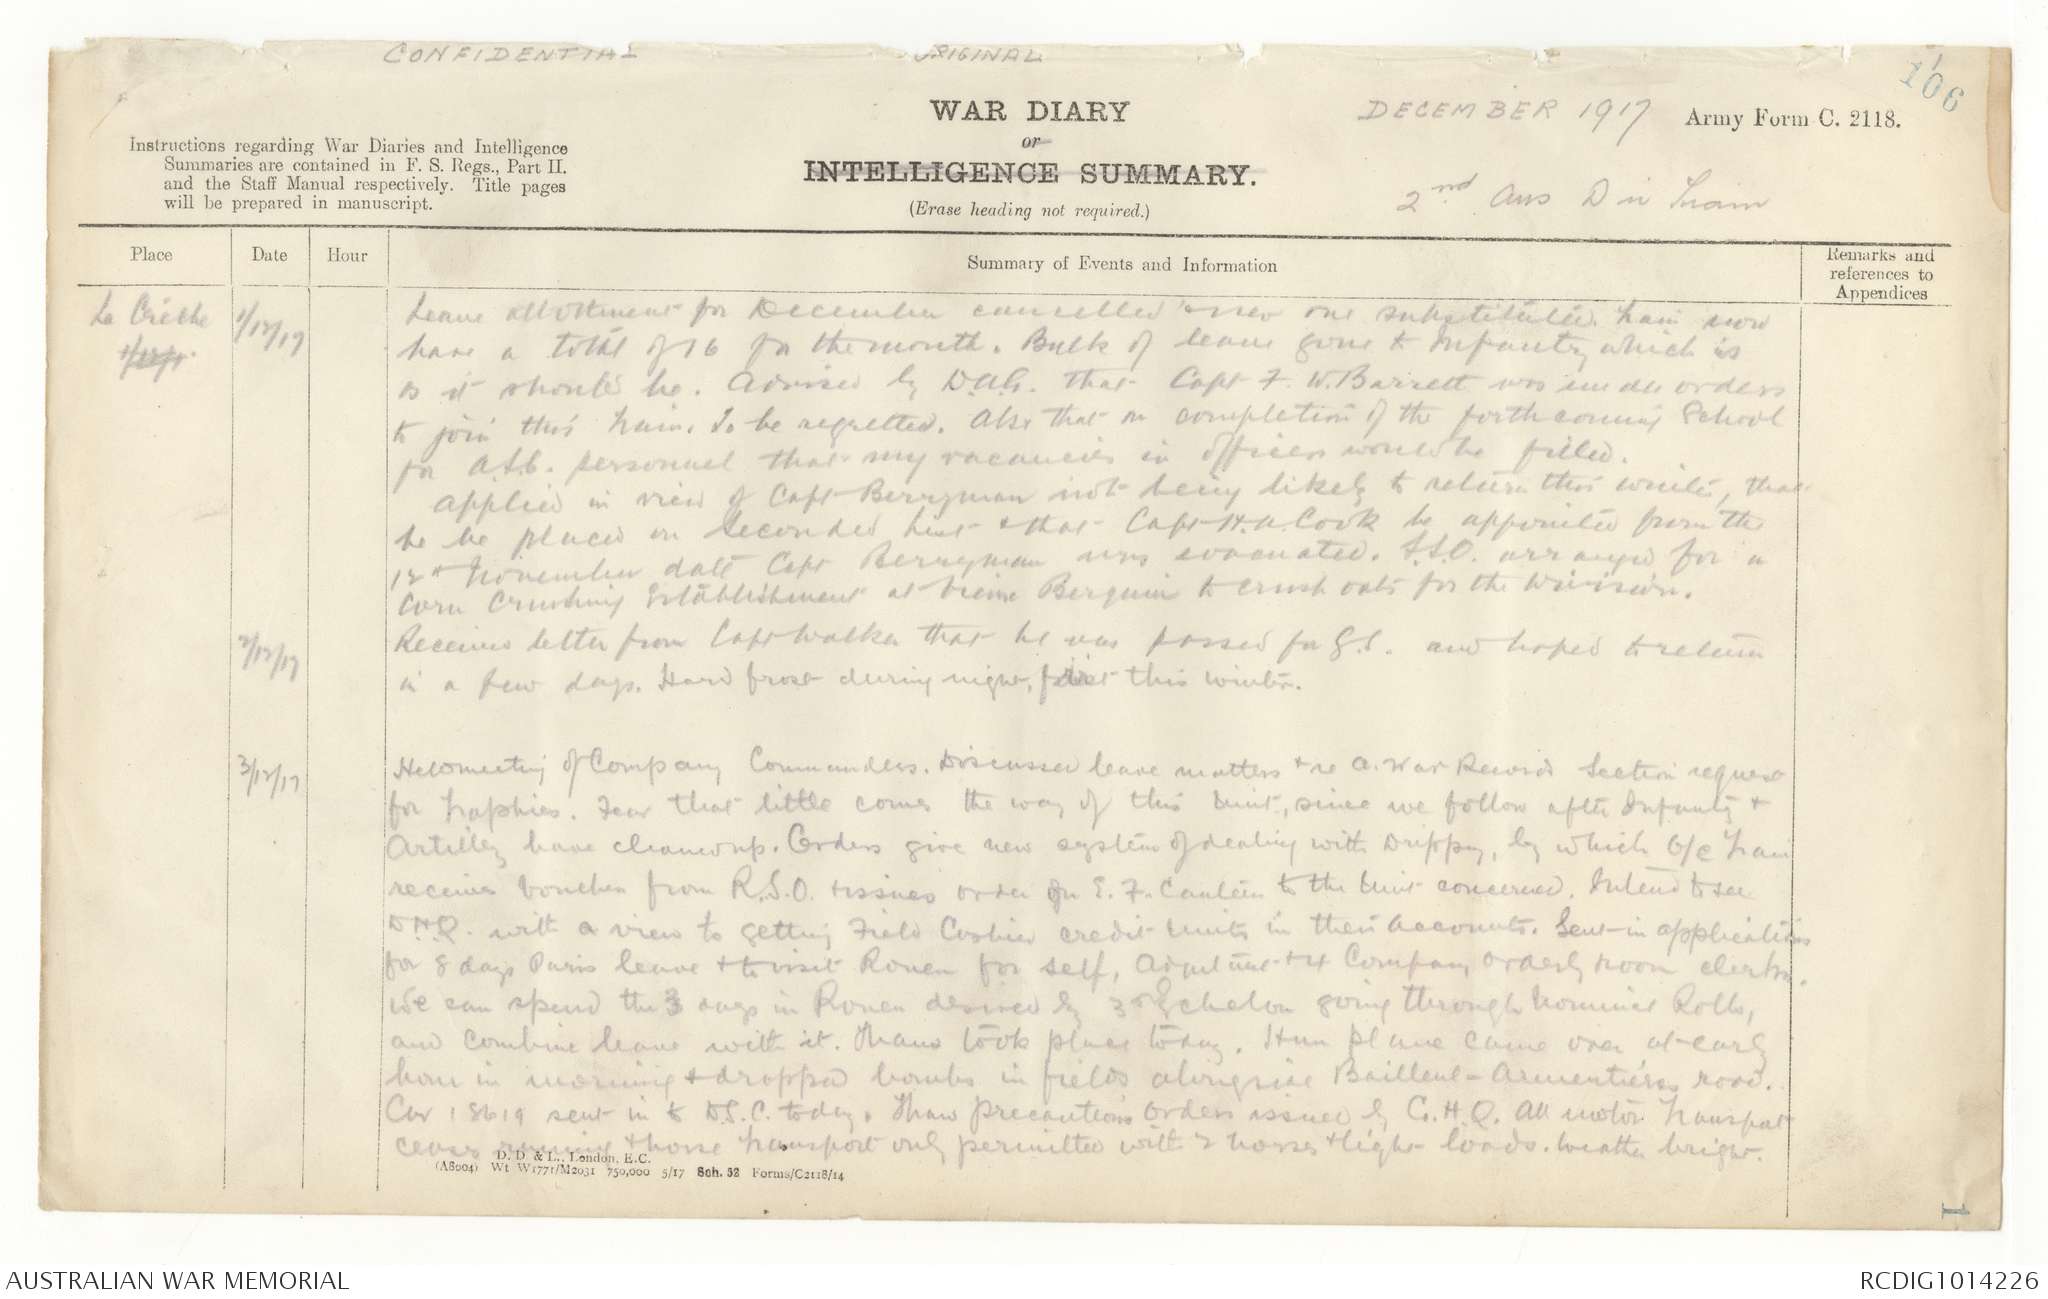 CONFIDENTIAL
ORIGINAL
106
WAR DIARY
or
INTELLIGENCE SUMMARY.
(Erase heading not required.)
DECEMBER 1917
Army Form C. 2118.
2nd Aus Div Train
Instructions regarding War Diaries and Intelligence
Summaries are contained in F. S. Regs., Part II.
and the Staff Manual respectively. Title pages
will be prepared in manuscript.
Place
Date
Hour
Summary of Events and Information
Remarks and
references to
Appendices
La Creche
1/12/17
Leave allottment for December cancelled & new one substituted. Train now
have a total of 16 for the month. Bulk of leave gone to Infantry which is
as it should be. Advised by D.A.G. that Capt F. W. Barrett was under orders
to join this Train. To be regretted. Also that on completion of the forthcoming School
for A.S.C. personnel that my vacancies in officers would be filled.
Applied in view of Capt Berryman not being likely to return this winter, that
he be placed on Seconded List & that Capt H.A. Cook be appointed from the
12th November date Capt Berryman was evacuated. S.S.O. arranged for a
Corn Crushing Establishment at Vieux Berquin to crush oats for the Division.
2/12/17
Received letter from Capt Walker that he was passed for G.S. and hoped to return
in a few days. Hard frost during night, first this winter.
3/12/17
Held meeting of Company Commanders. Discussed leave matters & re A. War Records Section request
for Trophies. Fear that little comes the way of this Unit, since we follow after Infantry &
Artillery have cleaned up. Orders give new system of dealing with Dripping, by which O/C Train
receives vouchers from R.S.O. & issues order on E. F. Canteen to the Unit concerned. Intend to see
D.H.Q. with a view to getting Field Cashier credit Units in their Accounts. Sent in applications
for 8 days Paris leave & to visit Rouen for self, Adjutant & 4 Company orderly room clerks.
We can spend the 3 days in Rouen desired by 3rd Echelon going through Nominal Rolls,
and combine leave with it. Thaw took place today. Hun plane came over at early
hour in morning & dropped bombs in fields alongside Bailleul-Armentieres road.
Car 18619 sent in to D.S.C. today. Thaw precautions orders issued by G.H.Q. All motor Transport
cease running & horse Transport only permitted with 2 horses & light loads. Weather bright.
D. D. & L., London, E.C.
(A8004) Wt W1771/M2031 750,000 5/17 Sch. 52 Forms/C2118/14
1
AUSTRALIAN WAR MEMORIAL
RCDIG1014226